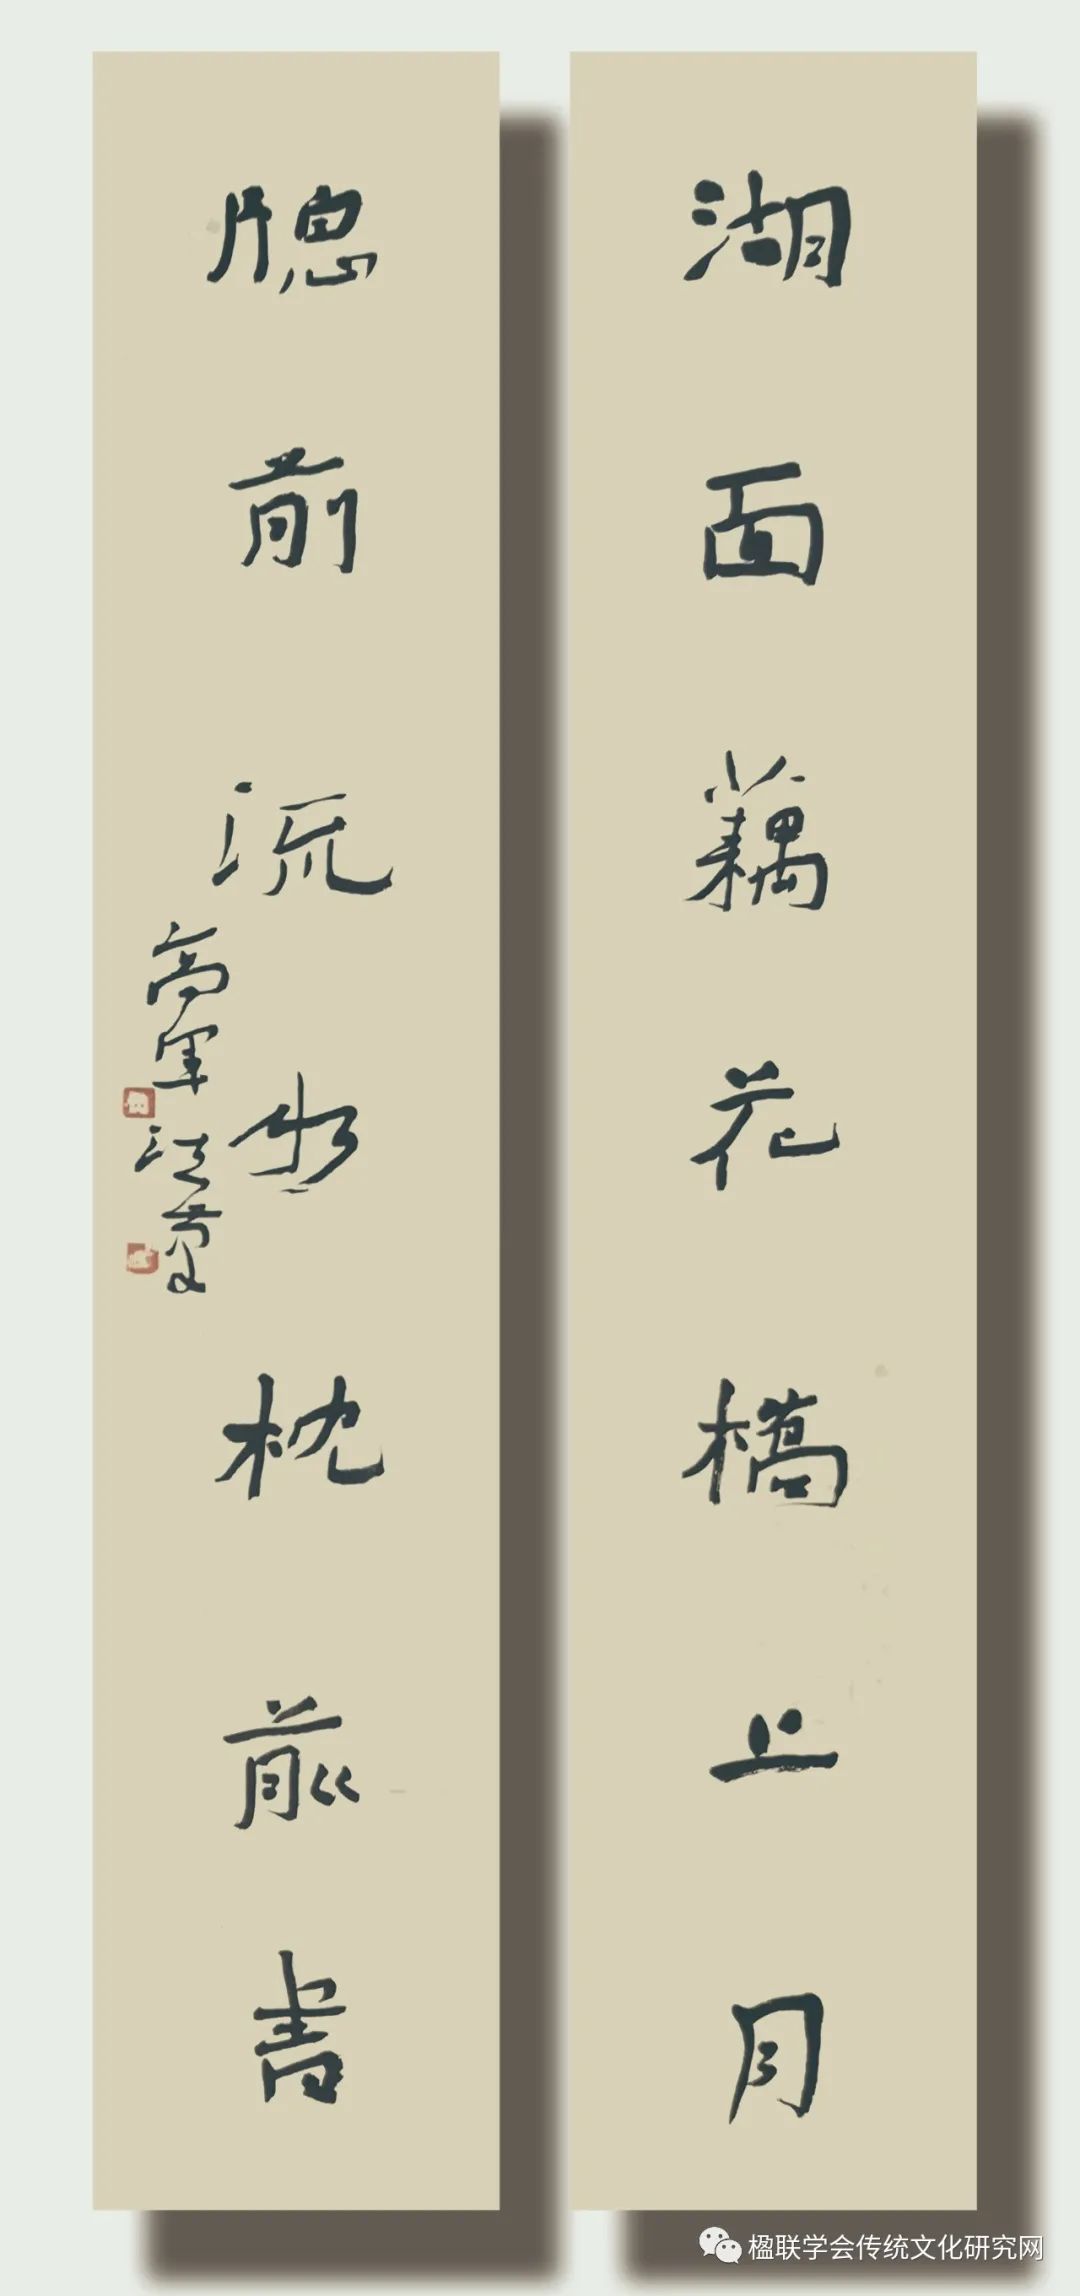 湖面藕花橋上月
牕前流水枕前書
高军
楹联学会传统文化研究网